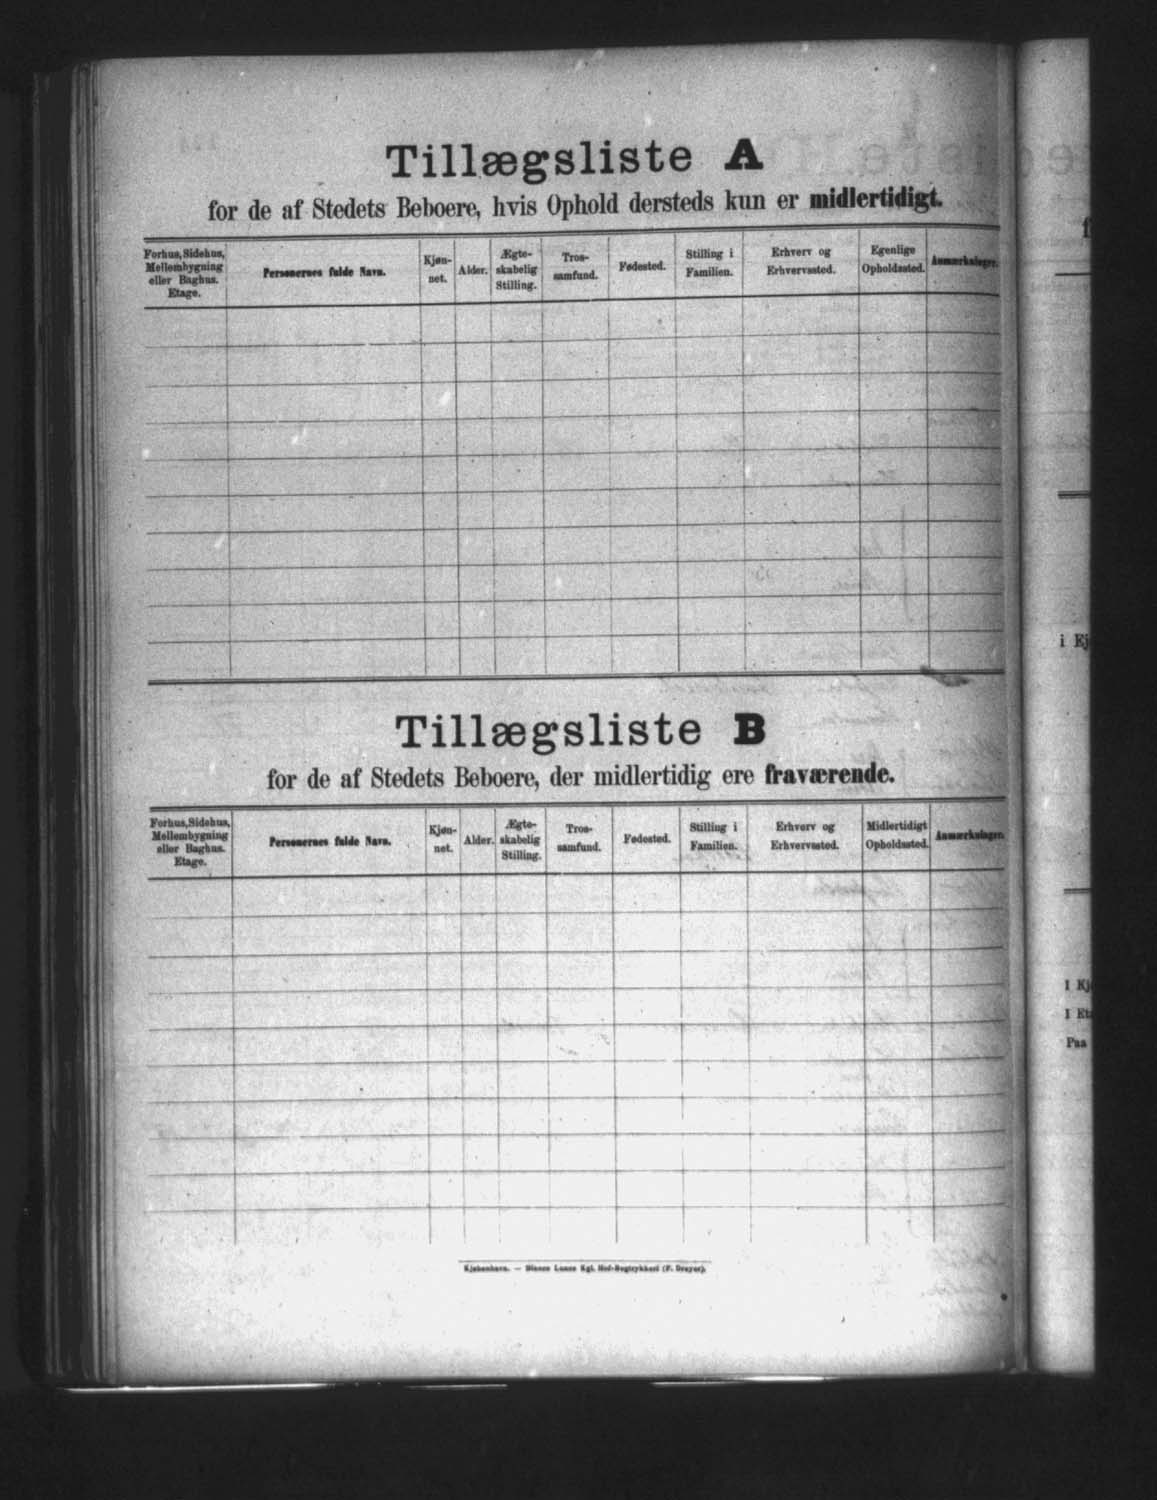 Tillægsliste A
for de af Stedets Beboere, hvis Ophold dersteds kun er midlertidigt.
Forhus, Sidehus, Mellembygning eller Baghus. Etage.
Personernes fulde Navn.
Kjøn- net.
Alder.
Ægte- skabelig Stilling.
Tros- samfund.
Fødested.
Stilling i Familien.
Erhverv og Erhvervssted.
Egenlige Opholdssted.
Anmærkninger.
Tillægsliste B
for de af Stedets Beboere, der midlertidig ere fraværende.
Forhus, Sidehus, Mellembygning eller Baghus. Etage.
Personernes fulde Navn.
Kjøn- net.
Alder.
Ægte- skabelig Stilling.
Tros- samfund.
Fødested.
Stilling i Familien.
Erhverv og Erhvervssted.
Midlertidigt Opholdssted.
Anmærkninger.
Kjøbenhavn. — Bianco Lunos Kgl. Hof-Bogtrykkeri (F. Dreyer).
i Ej
I Kj
I Et
Paa